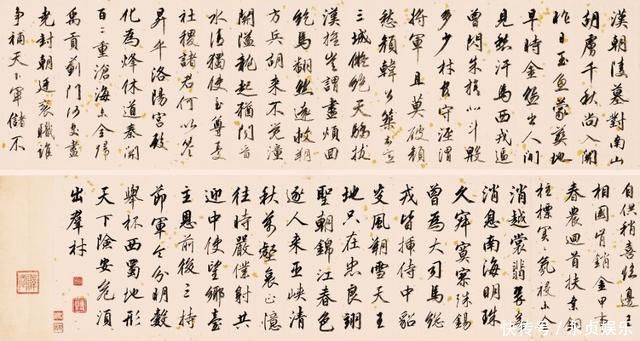 漢朝陵墓對南山
胡虜千秋尚入關
昨日玉魚蒙葬地
早時金盌出人間
見愁汗馬西戎逼
曾閃朱旗北斗殷
多少材官守涇渭
將軍且莫破
愁顏韓公本意築
三城擬絕天驕拔
漢旌豈謂盡煩回
紇馬翻然遠救朔
方兵胡來不覺潼
關隘龍起猶聞晉
水清獨使至尊憂
社稷諸君何以答
昇平洛陽宮殿
化為烽休道秦關
百二重滄海未全歸
禹貢薊門何處盡
堯封朝廷袞職誰
爭補天下軍儲不
自供稍喜臨邊王
相國肯銷金甲事
春農迴首扶桑銅
柱標冥冥氛祲未全
消越裳翡翠無
消息南海明珠
久寂寥殊錫
曾為大司馬總
戎皆插侍中貂
炎風朔雪天王
地只在忠良翊
聖朝錦江春色
逐人來巫峽清
秋萬壑哀正憶
往時嚴僕射共
迎中使望鄉臺
主恩前後三持
節軍令分明數
舉杯西蜀地形
天下險安危須
出群材
快传号/永贞娱乐